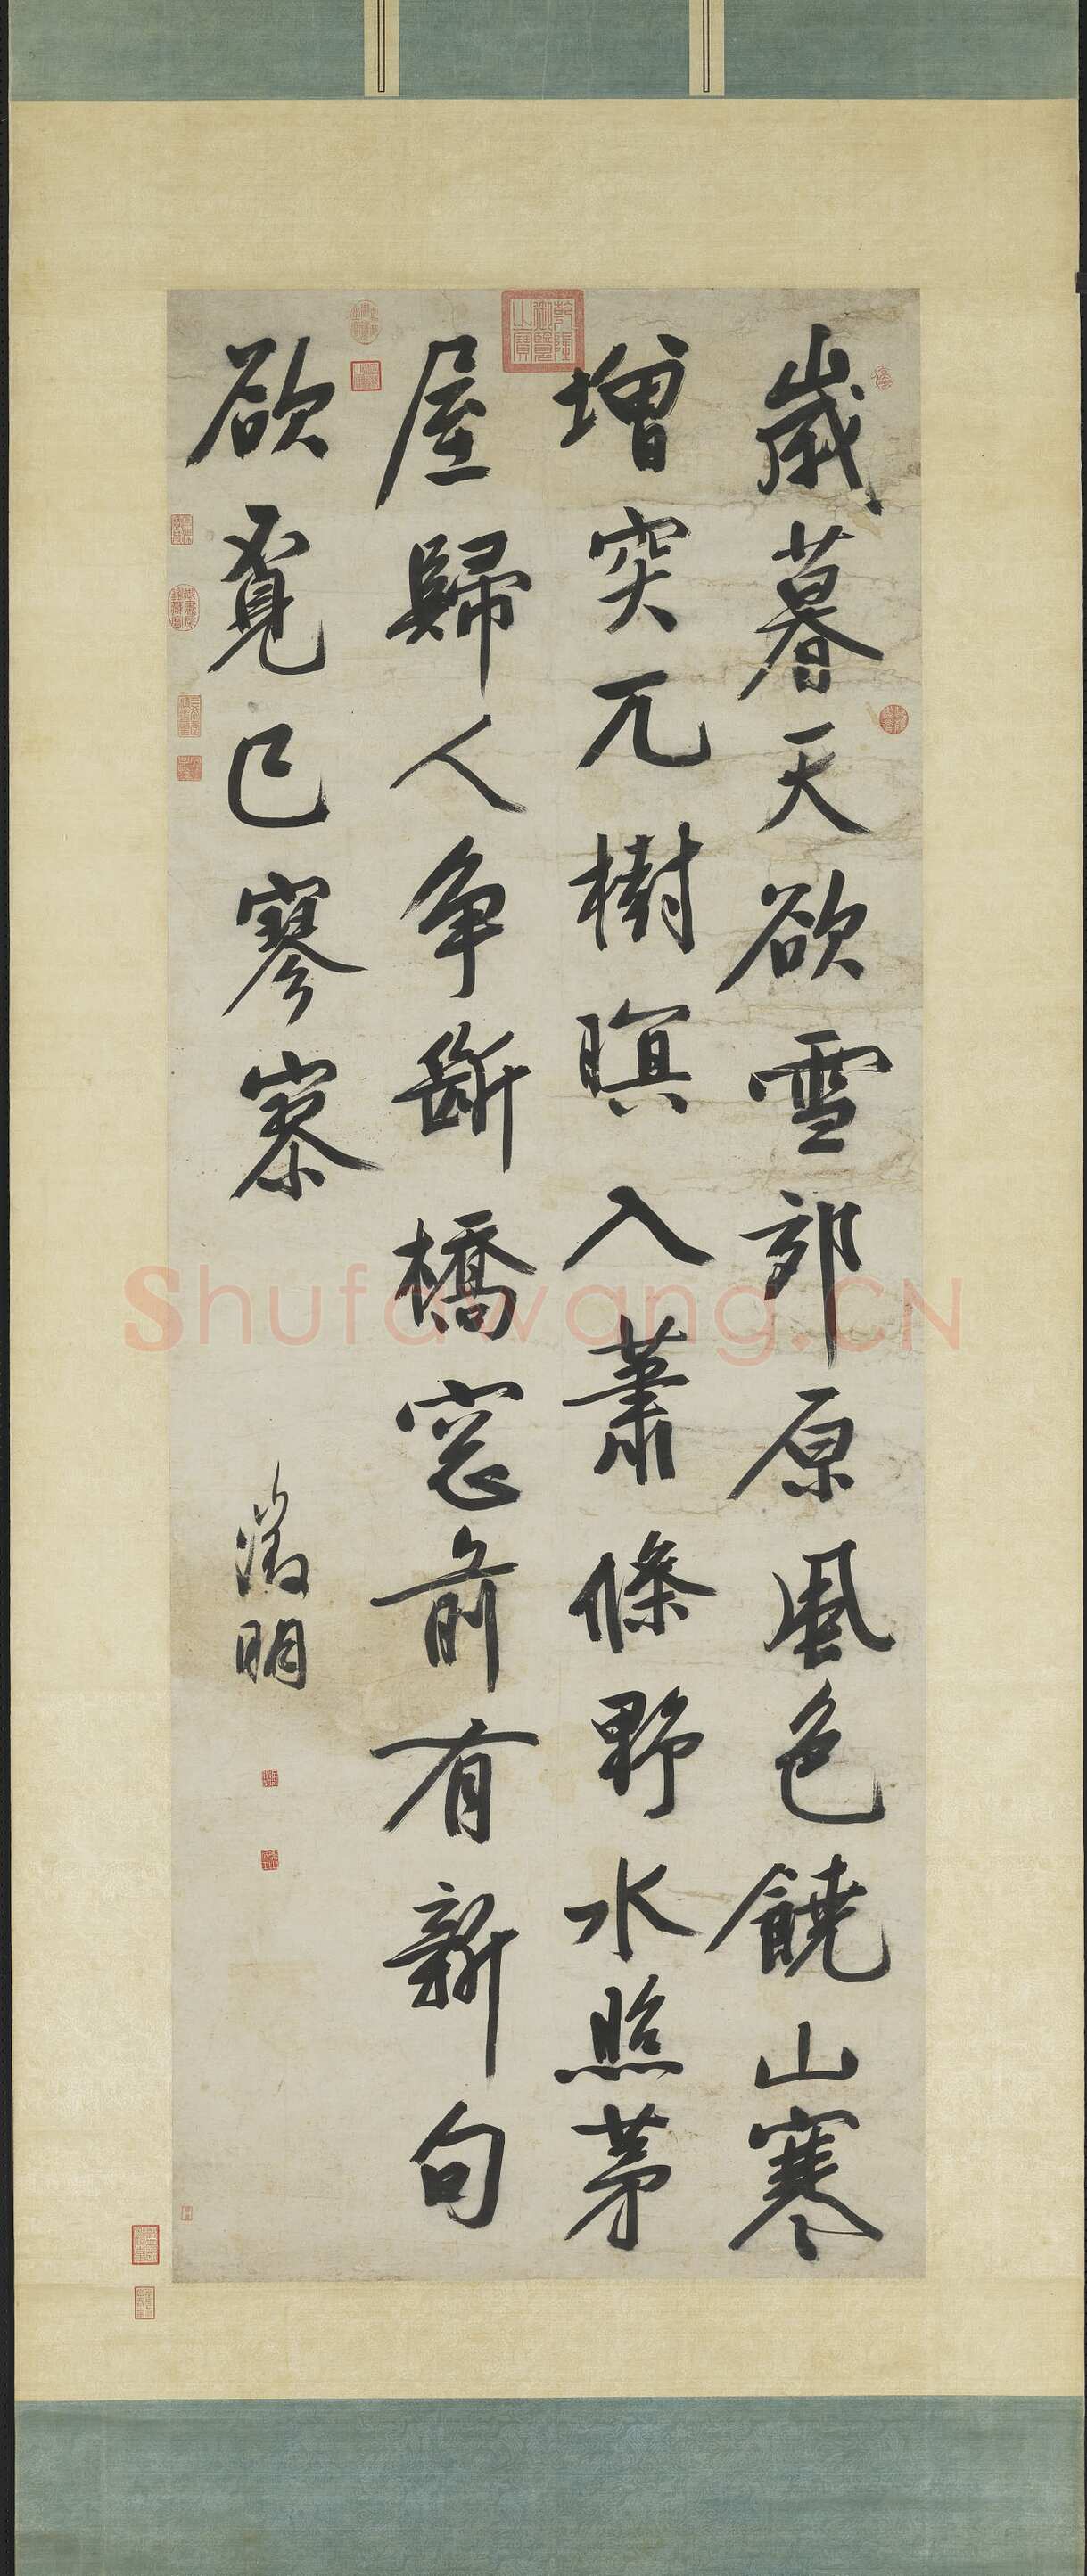 歲暮天欲雪郊原風色饒山寒
增突兀樹暝入蕭條野水照茅
屋歸人爭斷橋窓前有新句
欲覓已寥寥
徵明
乾隆御覽之寶
Shufawang.CN